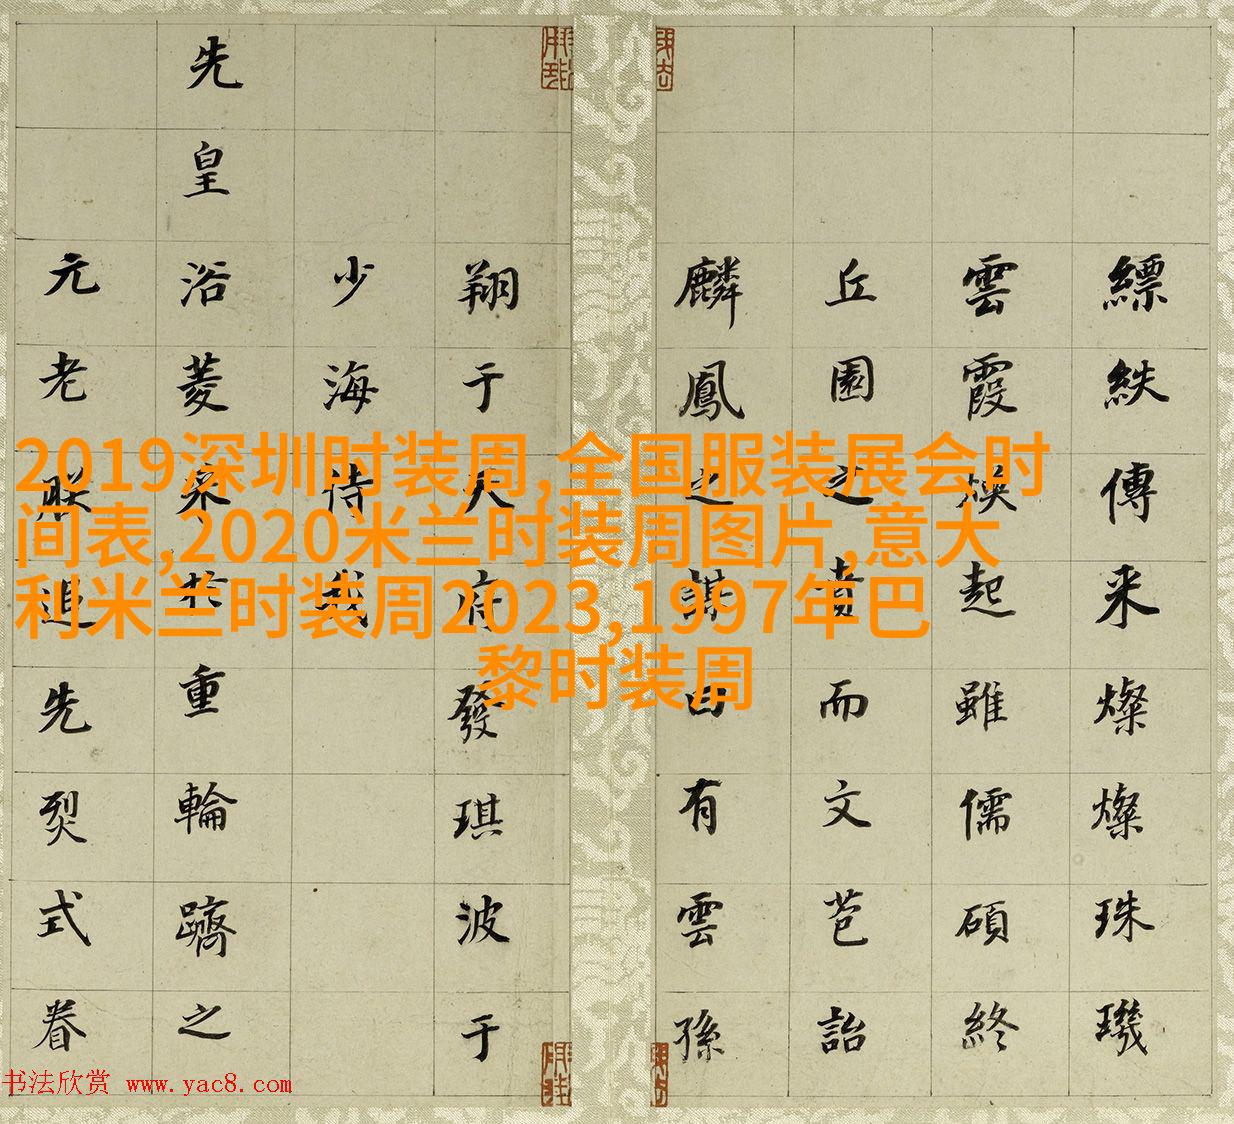 縹紩傳采燦燦珠璣
雲霞煥起雖儒碩終
丘園之賁而文芭詒
麟鳳之謀曰有雲孫
翔于天府發琪波于
少海侍我
先皇浴菱采於重輪躋之
元老朕追先烈式眷
2019深圳时装周,全国服装展会时
间表,2020米兰时装周图片,意大
利米兰时装周2023,1997年巴
黎时装周
书法欣赏 www.yac8.com